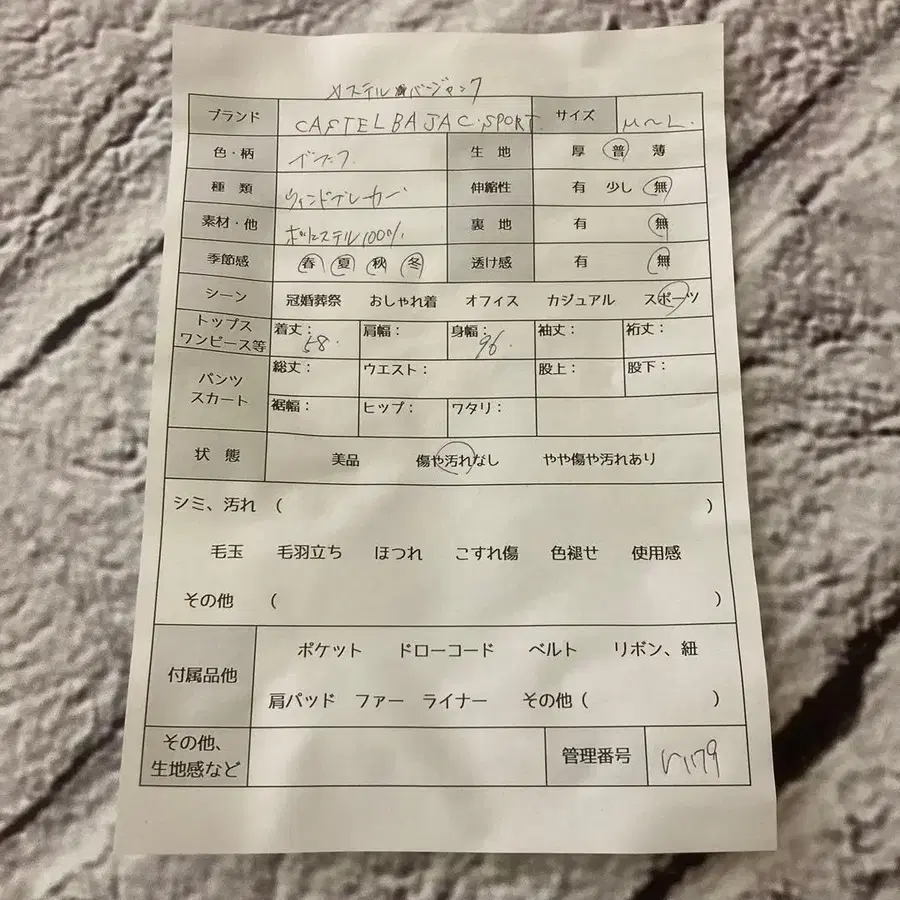 カステルバージャック
ブランド CASTELBAJAC.SPORT. サイズ M~L.
色・柄 生地 厚 普 薄
種類 ウィンドブレーカー 伸縮性 有 少し 無
素材・他 ポリエステル100% 裏地 有 無
季節感 春 夏 秋 冬 透け感 有 無
シーン 冠婚葬祭 おしゃれ着 オフィス カジュアル スポーツ
トップス ワンピース等 着丈: 58. 肩幅: 身幅: 96. 袖丈: 裄丈:
パンツ スカート 総丈: ウエスト: 股上: 股下:
裾幅: ヒップ: ワタリ:
状態 美品 傷や汚れなし やや傷や汚れあり
シミ、汚れ ( )
毛玉 毛羽立ち ほつれ こすれ傷 色褪せ 使用感
その他 ( )
付属品他 ポケット ドローコード ベルト リボン、紐
肩パッド ファー ライナー その他 ( )
その他、生地感など 管理番号